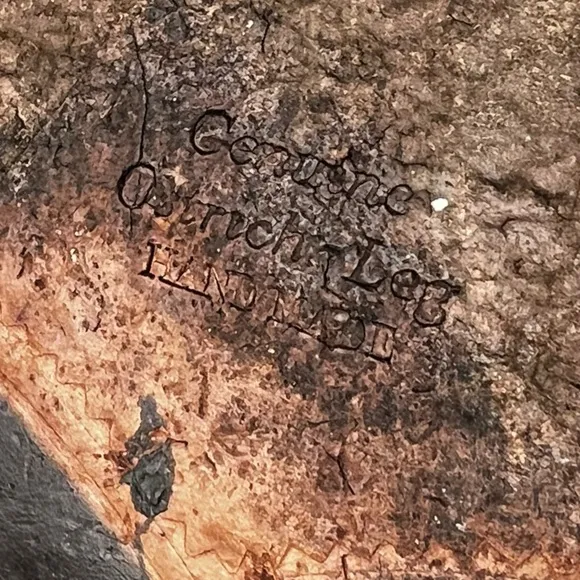 Genuine
Ostrich Leg
HAND MADE